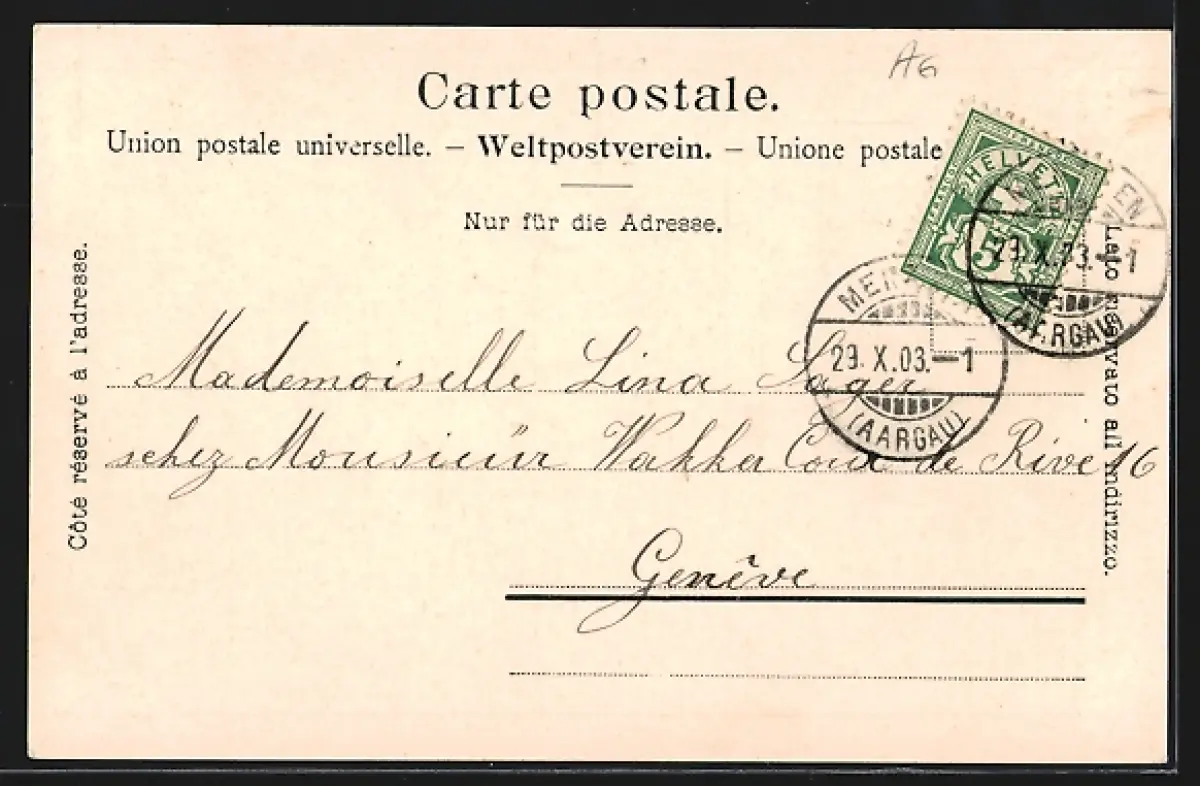 AG
Carte postale.
Union postale universelle. – Weltpostverein. – Unione postale
Nur für die Adresse.
Côté réservé à l'adresse.
HELVETIA
5
29.X.03.–1
(AARGAU)
29.X.03.–1
(AARGAU)
Mademoiselle Lina Sager
chez Monsieur Wakker Cour de Rive 16
Genève
Lato riservato all'indirizzo.